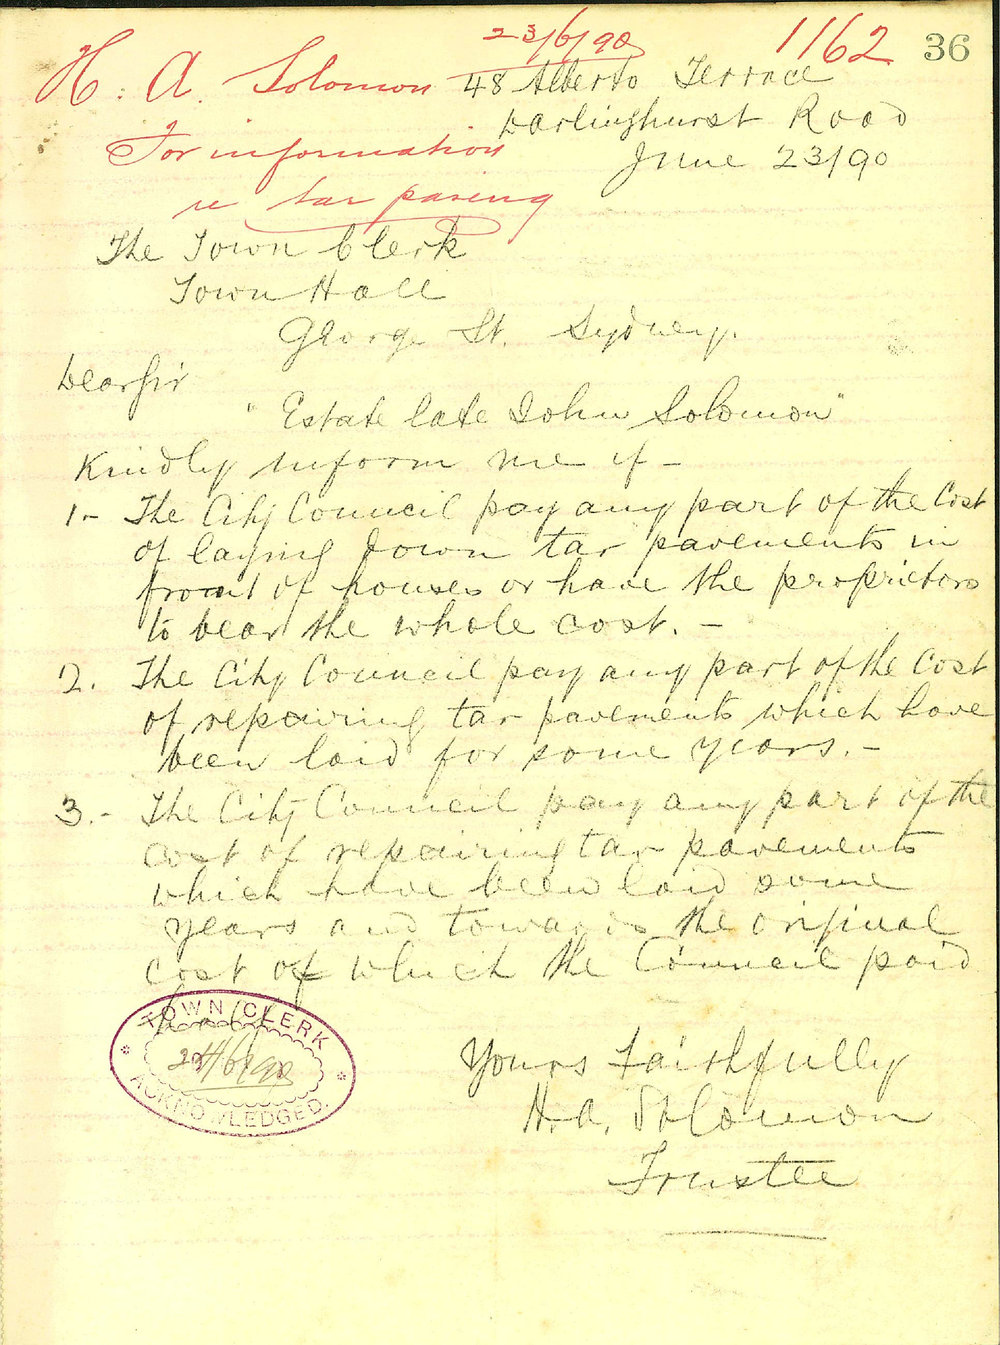 23/6/90
1162
36
H. A. Solomon
48 Alberto Terrace
Darlinghurst Road
For information
June 23/90
re tar paving
The Town Clerk
Town Hall
George St. Sydney.
Dear Sir
"Estate late John Solomon"
Kindly inform me if –
1.– The City Council pay any part of the Cost
of laying down tar pavements in
front of houses or have the proprietors
to bear the whole cost. –
2. The City Council pay any part of the Cost
of repairing tar pavements which have
been laid for some years. –
3.– The City Council pay any part of the
cost of repairing tar pavements
which have been laid some
years and towards the original
cost of which the Council paid
TOWN CLERK
24/6/90
ACKNOWLEDGED.
Yours Faithfully
H. A. Solomon
Trustee